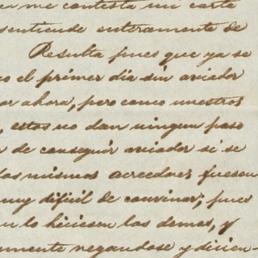 me contesta mi carta
sentiende enteramente de
Resulta pues que ya se
es el primer dia sin aviador
or ahora, pero como nuestros
, estos no dan ningun paso
r de conseguir aviador si se
los mismos acredores fuesen
muy dificil de convinar; pues
lo hiciesen los demas, y
amente negandose y dicien-